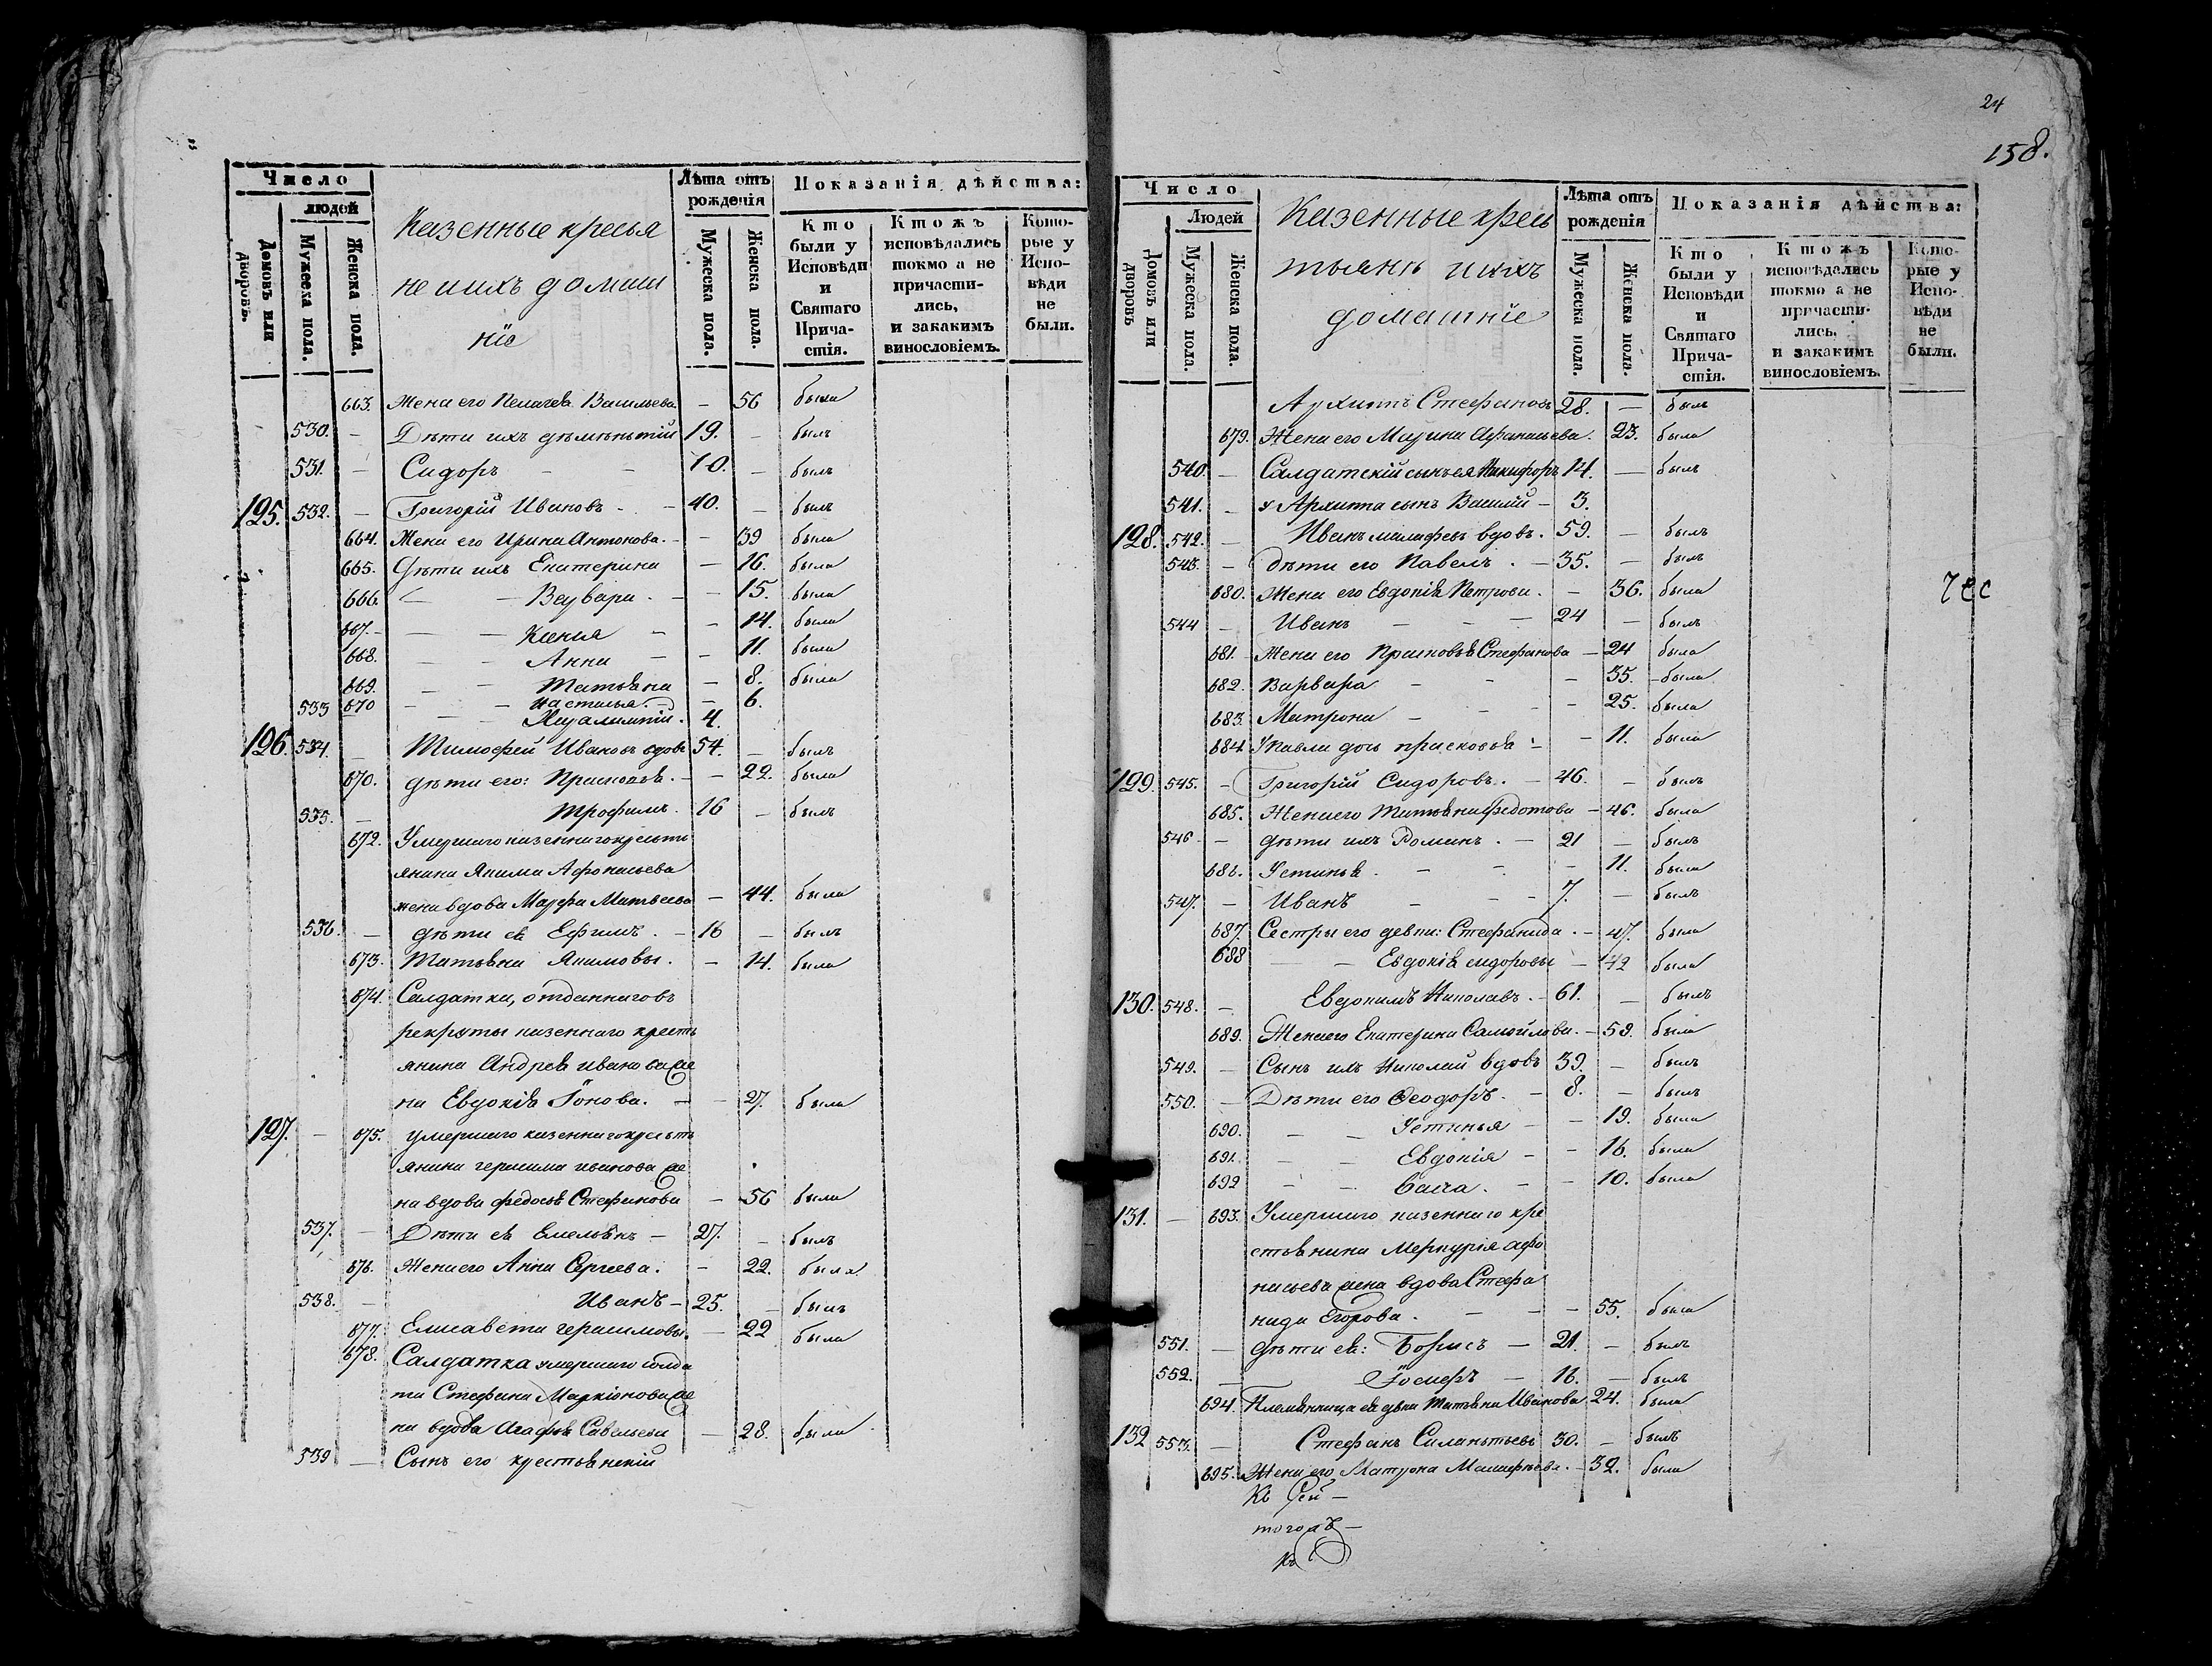 Число
людей
Домовъ или дворовъ.
Мужеска пола.
Женска пола.
Казенные кресья
не и ихъ домаш
нiе
Лѣта отъ рожденія
Мужеска пола.
Женска пола.
Показанія дѣйства:
Кто были у Исповѣди и Святаго Прича-стія.
Ктожъ исповѣдались токмо а не причасти-лись, и закакимъ винословіемъ.
Кото-рые у Испо-вѣди не были.
663. Жена его Пелагея Васильева. – 56 была
530. – Дѣти ихъ 19. – былъ
531. – Сидоръ – – 10. – былъ
125. 532. – Григорій Ивановъ – – 40. – былъ
664. Жена его Ирина Антонова. – – 39 была
665. Дѣти ихъ Екатерина – 16. была
666. – – Варвара. – – 15. была
667. – – – Ксенія – – 14. была
668. – – Анна – – 11. была
669. – – Татьяна – 8. была
670 – – Настасья. – – 6.
533 – – 4.
126. 534. – Тимофей Ивановъ вдовъ 54. – былъ
670. дѣти его: Прасковья. – – 22. была
535. – Трофимъ. 16 – былъ
672. Умершаго казеннаго крестъ
янина Якима Афонасьева
жена вдова Марфа Матвеева – 44. была
536. – дѣти ея Ефимъ. – 16 – былъ
673. Татьяна Якимовы. – 14. была
674. Салдатка, отданнаго въ
рекруты казеннаго кресть
янина Андрея Иванова же
на Евдокія Іонова. – – 27. была
127. – 675. умершаго казеннаго кресть
янина герасима иванова же
на вдова федосья Стефанова – 56 была
537. – Дѣти ея Емельянъ – 27. – былъ
676. Жена его Анна Сергеева. – 22. была
538. – Иванъ – 25. – былъ
677. Елисавета герасимовы. – 22 была
678. Салдатка умершаго солда
та Стефана Маркіонова же
на вдова Агафья Савельева – 28. была
539 – Сынъ его крестьянскій
24
158.
Число
Людей
Домовъ или дворовъ
Мужеска пола.
Женска пола.
Казенные кресь
тьяне и ихъ
домашніе
Лѣта отъ рожденія
Мужеска пола.
Женска пола.
Показанія дѣйства:
Кто были у Исповѣди и Святаго Прича-стія.
Ктожъ исповѣдались токмо а не причасти-лись, и закакимъ винословіемъ.
Кото-рые у Испо-вѣди не были.
Архиппъ Стефановъ 28. – былъ
679. Жена его Марина Афанасьева. 23. была
540. – Салдатскій сынъ ея Никифоръ 14. – былъ
541. – у Архиппа сынъ Василій – 3.
128. 542. – Иванъ малафеевъ вдовъ. 59. – былъ
543. – дѣти его Павелъ. – 35. – былъ
680. Жена его Евдокія Петрова. – 36. была
544 – Иванъ – – – 24 – былъ
681. Жена его Прасковья Стефанова – 24 была
682. Варвара – – – 35. – была
683. Матрона – – – 25. была
684. У Павла дочь прасковья – – 11. была
129. 545. – Григорій Сидоровъ. – 46. – былъ
685. Жена его Татьяна федотова – 46. была
546 – – дѣти ихъ Романъ. – 21 – былъ
686. Устинья. – – – 11. была
547. – Иванъ – – – 7. – былъ
687. Сестры его девки: Стефанида. – 47. была
688 – – Евдокія сидоровы – 42 была
130. 548. – Евдокимъ Николаевъ. – 61. – былъ
689. Жена его Екатерина Самойлова. – 59. была
549. – Сынъ ихъ Николай вдовъ 39. – былъ
550. – Дѣти его Ѳеодоръ. – 8. – былъ
690. – – Устинья – – 19. была
691. – – Евдокія – – 16. была
692 – – – – 10. была
131. – 693. Умершаго казеннаго кре
стьянина Меркурія афо
насьева жена вдова Стефа
нида Егорова. – – – 55. была
551. – дѣти ея: Борисъ – 21. – былъ
552. – – 16. – былъ
694. Племянница ея дѣвка Татьяна Иванова 24. была
132 553. – Стефанъ Силантьевъ 30. – былъ
695. Жена его Матрона Малафѣева. – 32. была
Къ Сей –